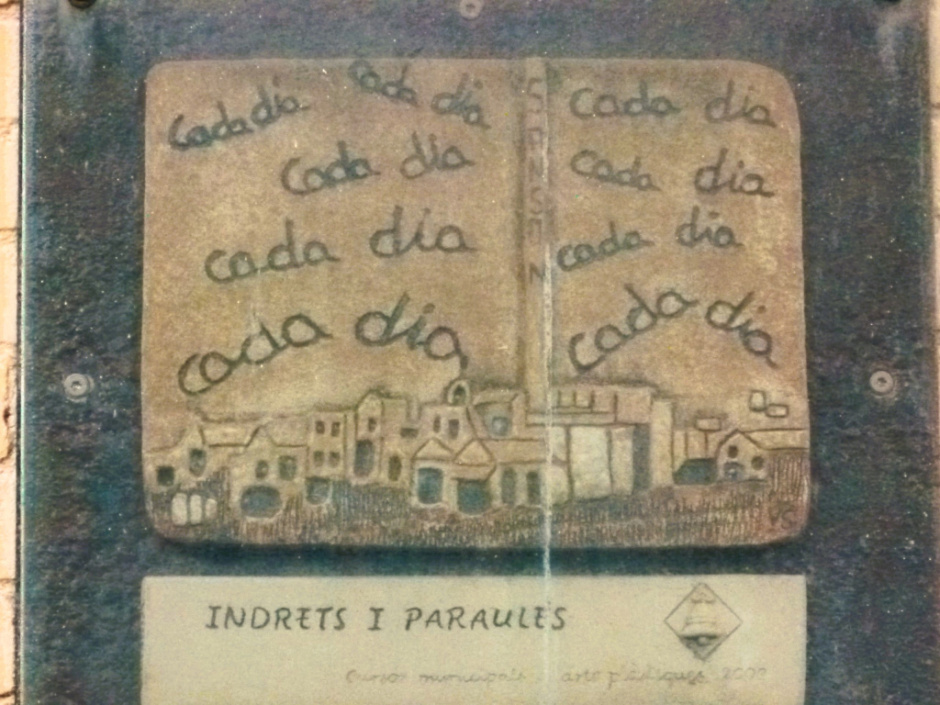 cada dia
cada dia
cada dia
cada dia
cada dia
SANSON
cada dia
cada dia
cada dia
cada dia
INDRETS I PARAULES
Cursos municipals arts plàstiques